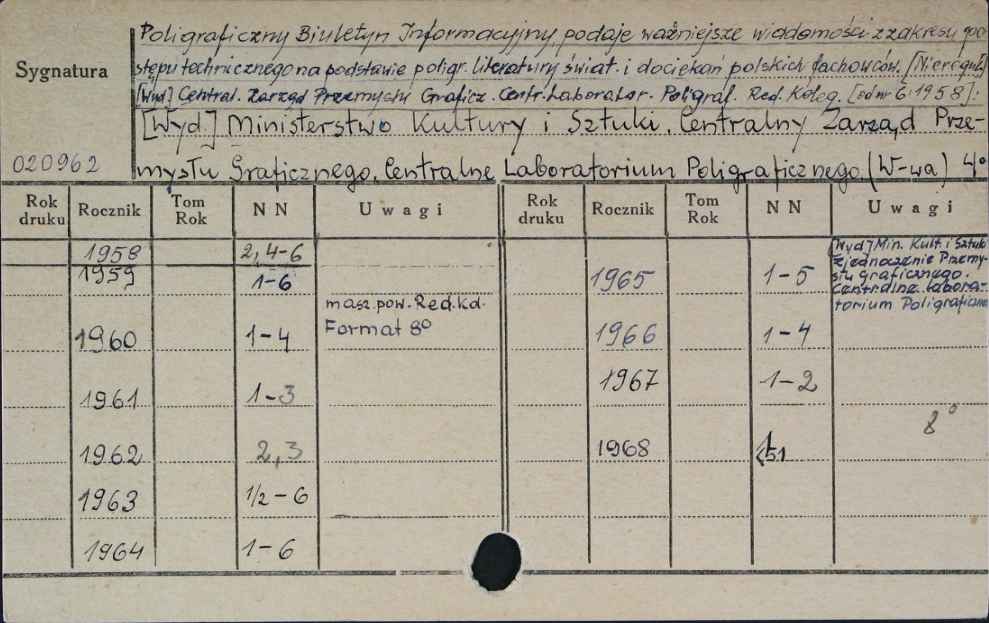 Poligraficzny Biuletyn Informacyjny podaje ważniejsze wiadomości z zakresu po-
Sygnatura
stępu technicznego na podstawie poligr. literatury świat. i dociekań polskich fachowców. [Nieregul.]
[Wyd] Central. Zarząd Przemysłu Graficz. Centr. Laborator. Poligraf. Red. Koleg. [od nr 6 1958]:
[Wyd.] Ministerstwo Kultury i Sztuki. Centralny Zarząd Prze-
020962
mysłu Graficznego. Centralne Laboratorium Poligraficznego. (W-wa) 4°
Rok druku Rocznik Tom Rok NN Uwagi Rok druku Rocznik Tom Rok NN Uwagi
1958 2, 4-6
1959 1-6
masz. pow. Red. Kd.
Format 8°
1960 1-4
1961 1-3
1962 2,3
1963 1/2-6
1964 1-6
[Wyd] Min. Kult. i Sztuki
Zjednoczenie Przemy-
słu graficznego.
Centralne Labora-
torium Poligraficzne
1965 1-5
1966 1-4
1967 1-2
8°
1968